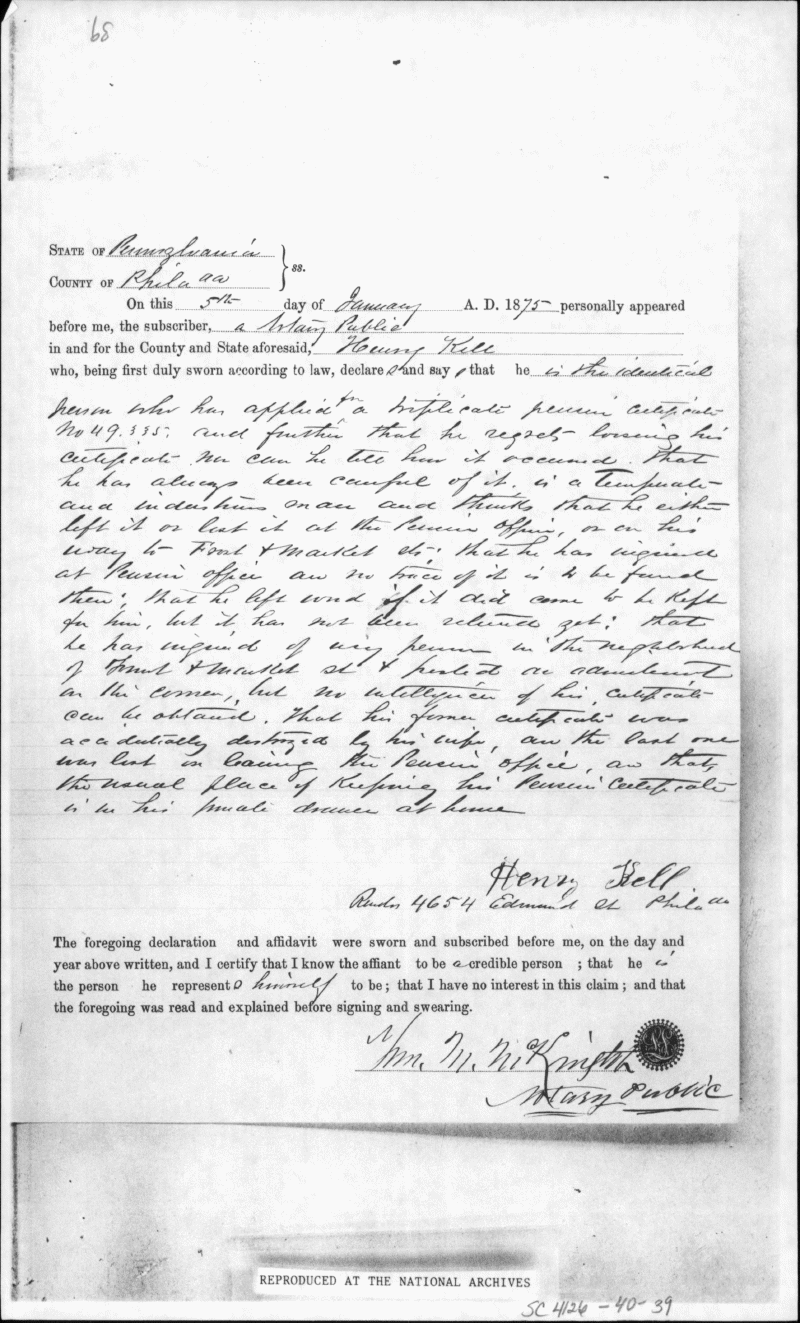 68
STATE OF Pennsylvania
COUNTY OF Philada
ss.
On this 5th day of January A. D. 1875 personally appeared
before me, the subscriber, a Notary Public
in and for the County and State aforesaid, Henry Kell
who, being first duly sworn according to law, declares and say that he is the identical
person who has applied for a triplicate pension certificate
No 49.335. and further that he regrets loosing his
certificate nor can he tell how it occurred. that
he has always been careful of it. is a temperate
and industrious man and thinks that he either
left it or lost it at the Pension office, or on his
way to Front & Market sts; that he has inquired
at Pension office and no trace of it is to be found
there; that he left word if it did come to be kept
for him, but it has not been returned yet; that
he has inquired of every person in the neighborhood
of Front & Market st & posted an advertisement
on the corner, but no intelligence of his certificate
can be obtained. that his former certificate was
accidentially destroyed by his wife, and the last one
was lost on leaving the Pension office, and that,
the usual place of Keeping his Pension Certificate
is in his private drawer at home
Henry Kell
Resides 4654 Edmund St Philada
The foregoing declaration and affidavit were sworn and subscribed before me, on the day and
year above written, and I certify that I know the affiant to be a credible person ; that he is
the person he represents himself to be; that I have no interest in this claim; and that
the foregoing was read and explained before signing and swearing.
Wm. M. McKnight
Notary Public
REPRODUCED AT THE NATIONAL ARCHIVES
SC 4126-40-39